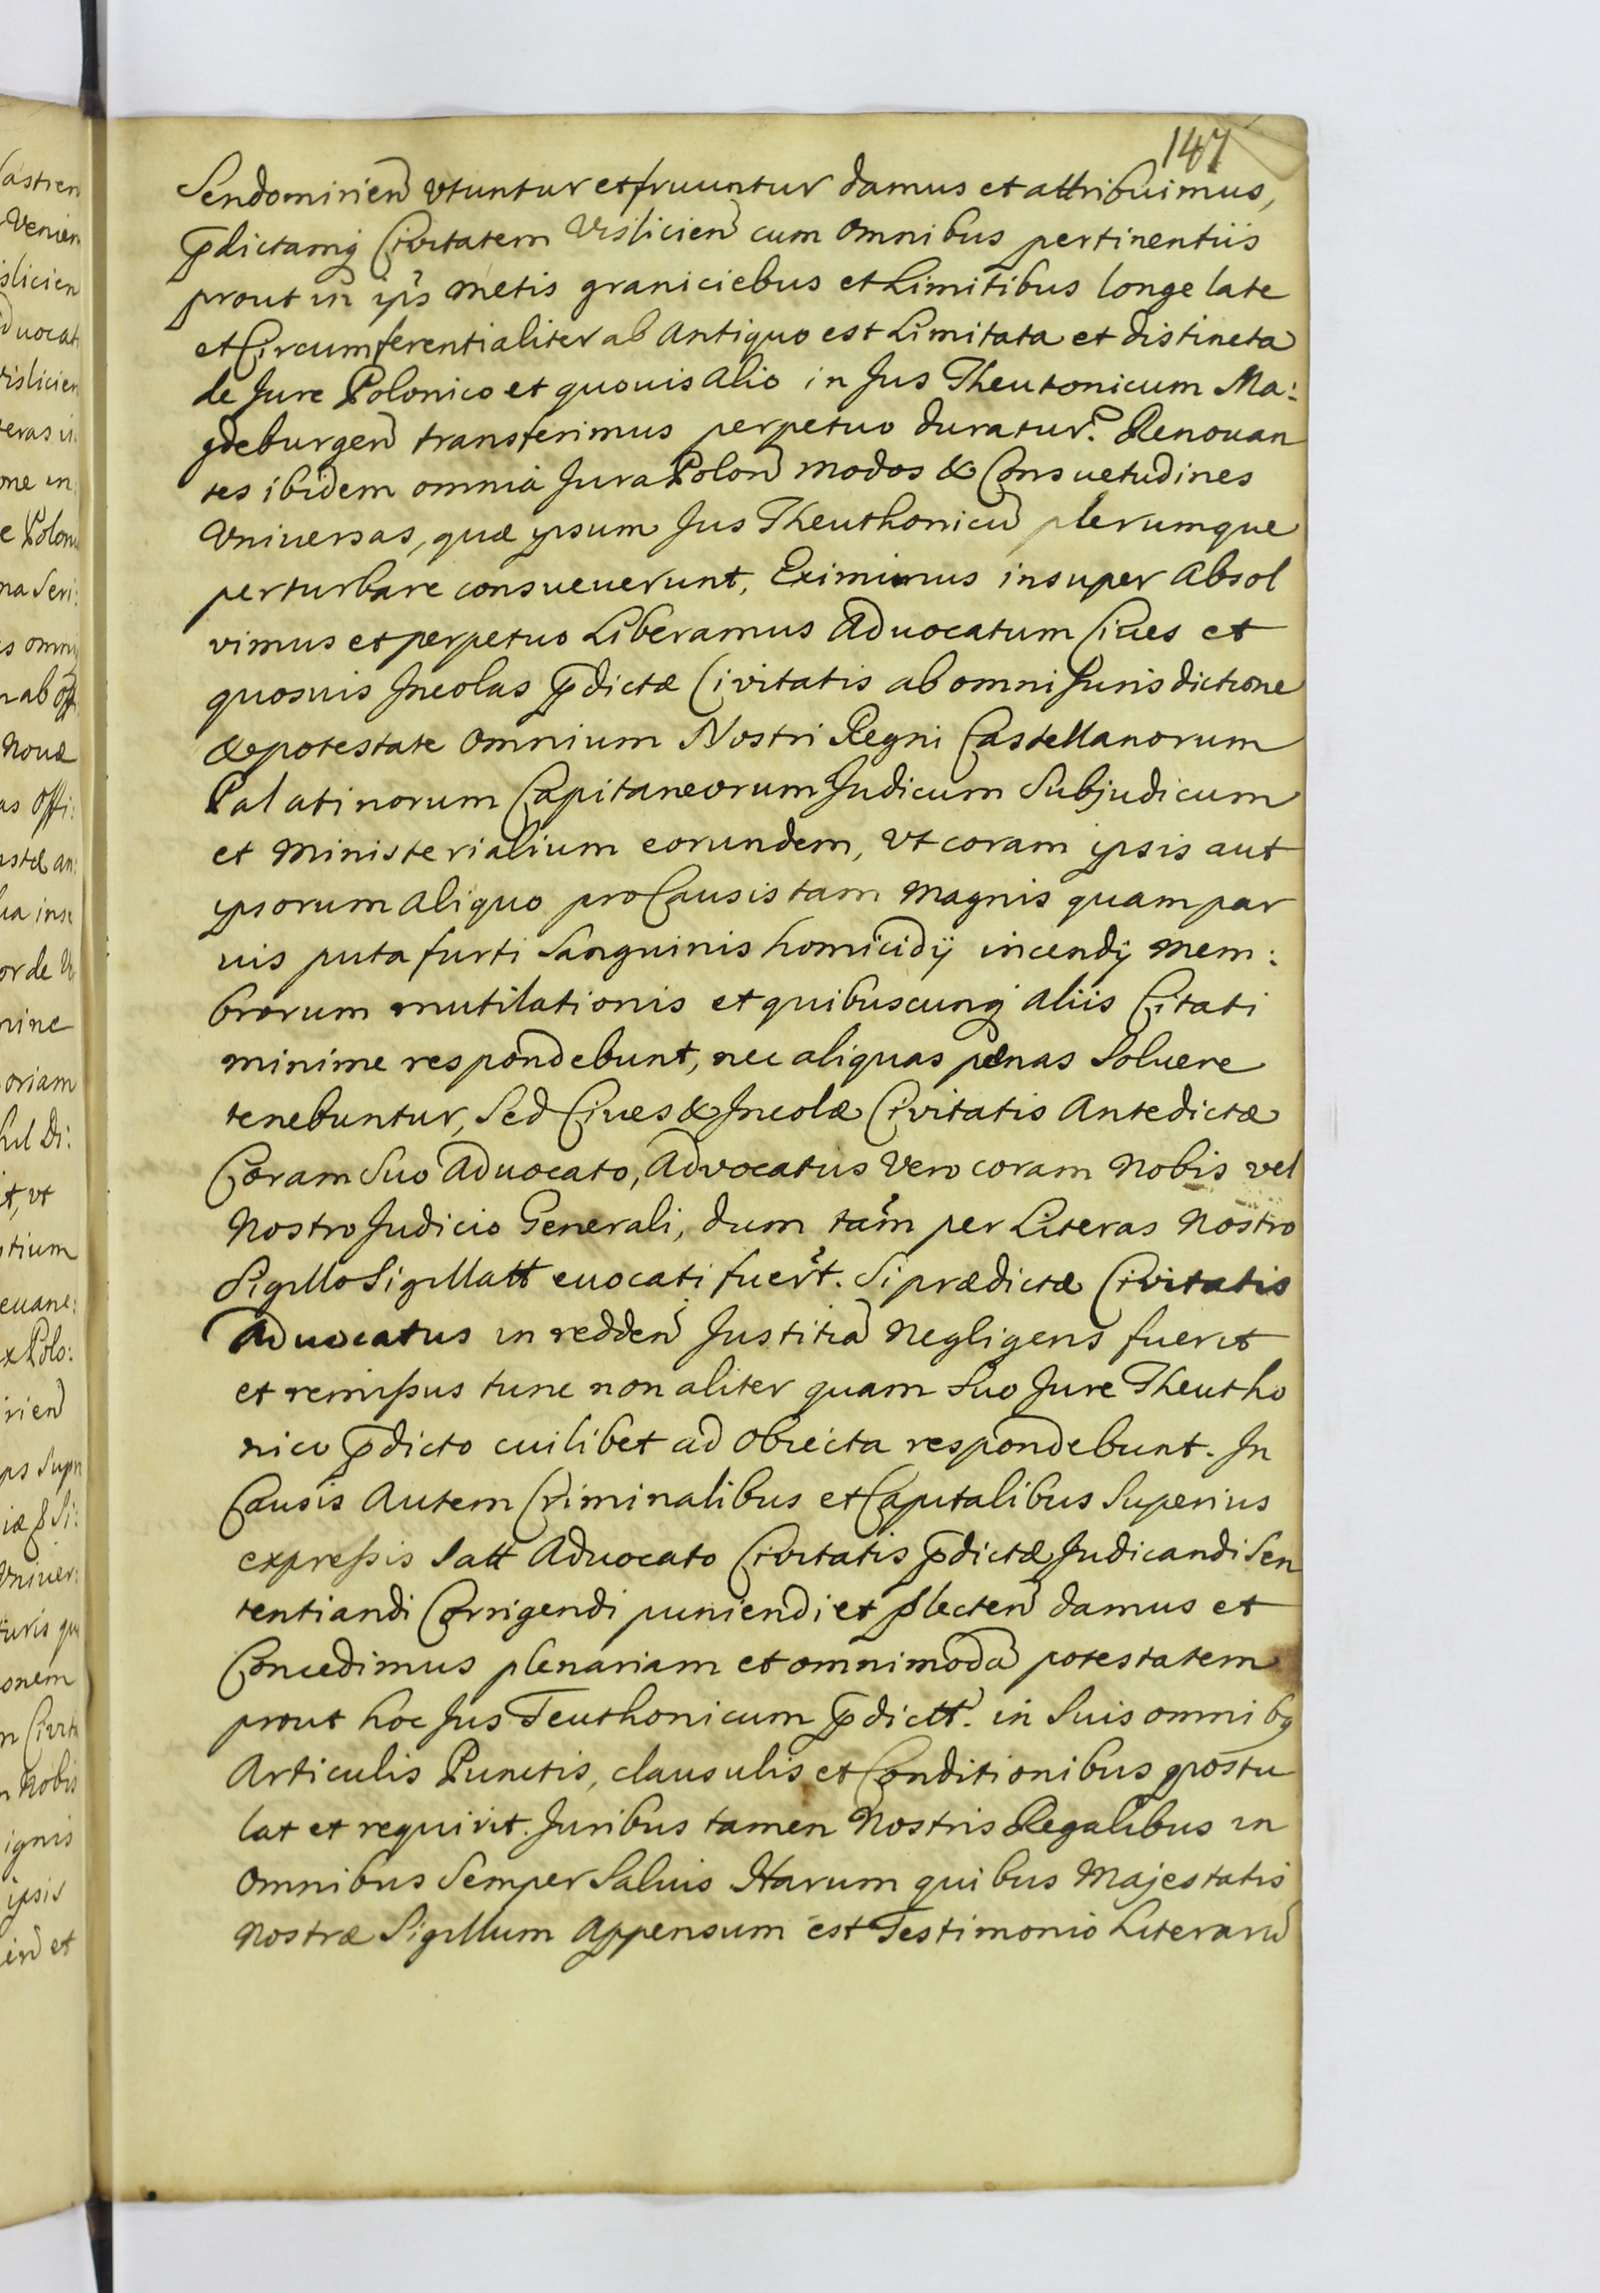 147
Sendomirień vtuntur et fruuntur damus et attribuimus,
p̄dictamq̨ Civitatem Vislicień cum omnibus pertinentiis
prout in ip̄s metis graniciebus et Limitibus longe late
et Circumferentialiter ab Antiquo est Limitata et distincta
de Jure Polonico et quouis alio in Jus Theutonicum Ma:
gdeburgeń transferimus perpetuo duratur̃. Renouan
tes ibidem omnia Jura Poloń modos & Consuetudines
Vniuersas, quæ ypsum Jus Theuthonicū plerumque
perturbare consueuerunt, Eximimus insuper Absol
vimus et perpetuo Liberamus Aduocatum Ciues et
quosuis Incolas p̄dictæ Civitatis ab omni Jurisdictione
& potestate omnium Nostri Regni Castellanorum
Palatinorum Capitaneorum Judicum Subjudicum
et Ministerialium eorundem, vt coram ypsis aut
ypsorum aliquo pro Causis tam magnis quam par
uis puta furti Sanguinis homicidÿ incendÿ mem:
brorum mutilationis et quibuscunq̨ aliis Citati
minime respondebunt, nec aliquas pænas Soluere
tenebuntur, Sed Ciues & Incolæ Civitatis Antedictæ
Coram Suo Aduocato, Advocatus Vero coram Nobis vel
Nostro Judicio Generali, dum tam̃ per Literas Nostro
Sigillo Sigillatt euocati fuer̃t. Si prædictæ Civitatis
Aduocatus in reddeń Justitiā Negligens fuerit
et remissus tunc non aliter quam Suo Jure Theutho
nico p̄dicto cuilibet ad obiecta respondebunt. In
Causis Autem Criminalibus et Capitalibus Superius
expressis Datt Aduocato Civitatis p̄dictæ Judicandi Sen
tentiandi Corrigendi puniendi et plecteń damus et
Concedimus plenariam et omnimodā potestatem
prout hoc Jus Teuthonicum p̄dictt. in Suis omnibq
Articulis Punctis, clausulis et Conditionibus postu
lat et requirit. Juribus tamen Nostris Regalibus in
Omnibus Semper Saluis Harum quibus Majestatis
Nostræ Sigillum Appensum est Testimonio Literarū